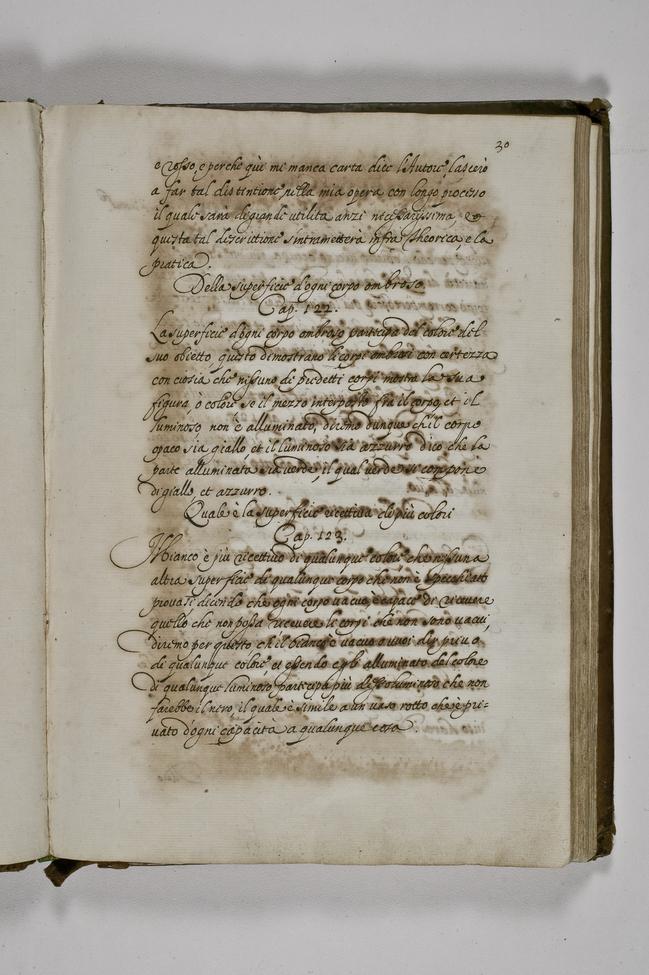 30
e rosso, e perche qui mi manca carta dice l'Autore, lascerò
a far tal distintione nella mia opera con longo processo
il quale sarà di grande utilità anzi necessarissima, et
questa tal descrittione s'intrametterà infra Theorica e la
pratica.
Della superficie d'ogni corpo ombroso
Cap. 122.
La superficie d'ogni corpo ombroso partecipa del colore del
suo obietto, questo dimostrano li corpi ombrosi con certezza
con ciosia che nissuno de predetti corpi mostra la sua
figura, ò colore se il mezzo interposto fra il corpo, et il
luminoso non è alluminato, diremo dunque ch'il corpo
opaco sia giallo, et il luminoso sia azzurro dico che la
parte alluminata sia verde, il qual verde si compone
di giallo, et azzurro.
Quale è la superficie ricettiva di più colori
Cap. 123.
Il bianco è più ricettivo di qualunque colore che nissuna
altra superficie di qualunque corpo che non è specchiato
provasi dicendo che ogni corpo vacuo, è capace di ricevere
quello che non possa ricevere li corpi che non sono vacui,
diremo per questo ch'il bianco è vacuo o vuoi dir privo
di qualunque colore, et essendo alluminato del colore
di qualunque luminoso partecipa più di luminoso che non
farebbe il nero, il quale è simile a un vaso rotto che è pri-
vato d'ogni capacità a qualunque cosa.